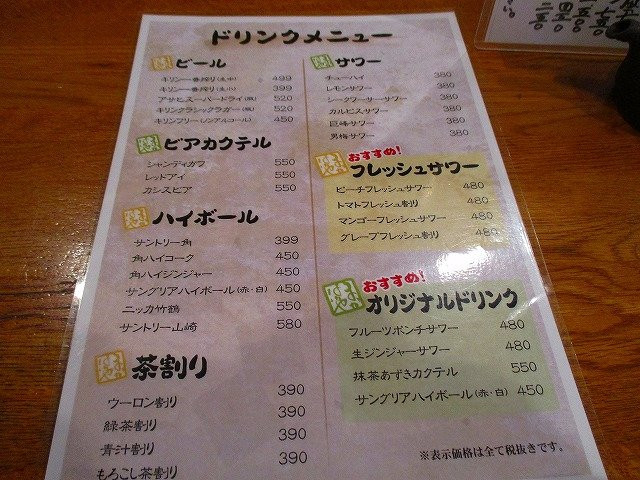 ドリンクメニュー
ビール
キリン一番搾り(生中) 499
キリン一番搾り(生小) 399
アサヒスーパードライ(瓶) 520
キリンクラシックラガー(瓶) 520
キリンフリー(ノンアルコール) 450
ビアカクテル
シャンディガフ 550
レッドアイ 550
カシスビア 550
ハイボール
サントリー角 399
角ハイコーク 450
角ハイジンジャー 450
サングリアハイボール(赤・白) 450
ニッカ竹鶴 550
サントリー山崎 580
茶割り
ウーロン割り 390
緑茶割り 390
青汁割り 390
もろこし茶割り 390
サワー
チューハイ 380
レモンサワー 380
シークワーサーサワー 380
カルピスサワー 380
巨峰サワー 380
男梅サワー 380
おすすめ!
フレッシュサワー
ピーチフレッシュサワー 480
トマトフレッシュ割り 480
マンゴーフレッシュサワー 480
グレープフレッシュ割り 480
おすすめ!
オリジナルドリンク
フルーツポンチサワー 480
生ジンジャーサワー 480
抹茶あずきカクテル 550
サングリアハイボール(赤・白) 450
※表示価格は全て税抜きです。